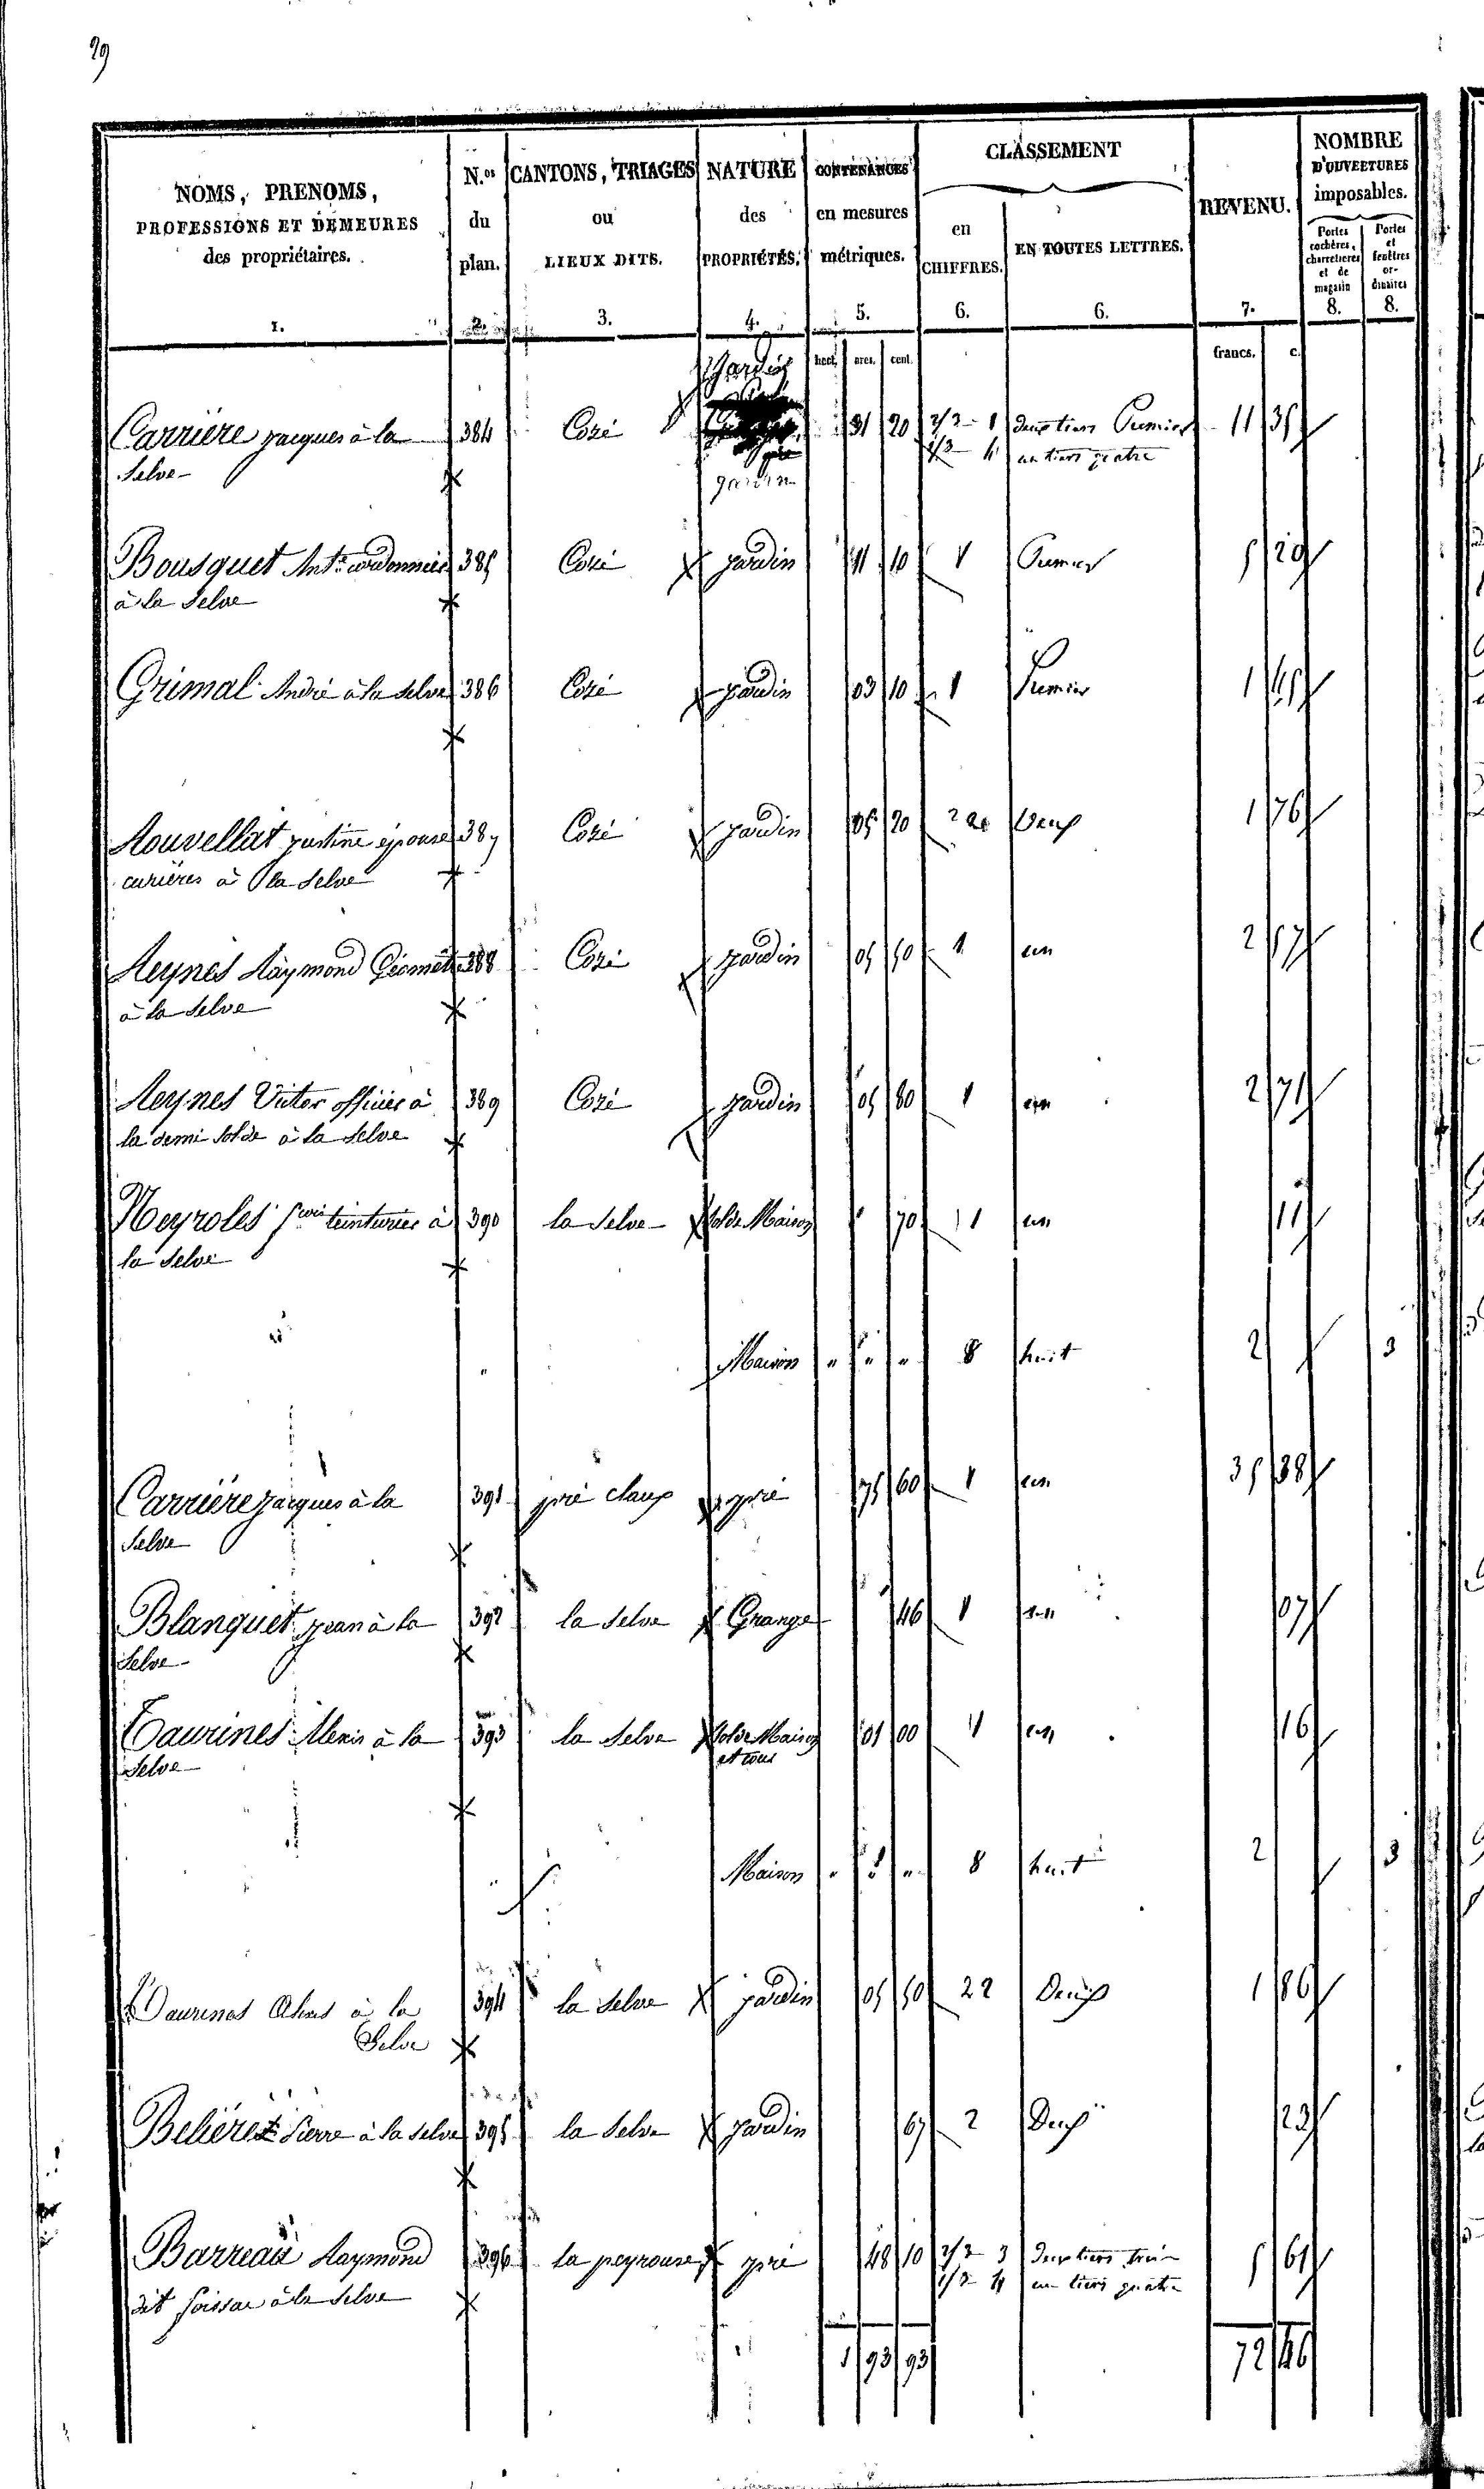 29
NOMS, PRENOMS, PROFESSIONS ET DEMEURES des propriétaires. 1.
N.os du plan. 2.
CANTONS, TRIAGES ou LIEUX DITS. 3.
NATURE des PROPRIÉTÉS. 4.
CONTENANCES en mesures métriques. 5.
CLASSEMENT
en CHIFFRES. 6.
EN TOUTES LETTRES. 6.
REVENU. 7.
NOMBRE D'OUVERTURES imposables.
Portes cochères, charretières et de magasin 8.
Portes et fenêtres ordinaires 8.
hect. ares. cent. francs. c.
jardin
Carrière jacques à la 384 Cozé 31 20 2/3 - 1 deux tiers Premier 11 35
Selve 1/3 - 4 un tiers quatre
jardin
Bousquet Ant.e cordonnier 385 Cozé jardin 11 10 1 Premier 5 20
à la Selve
Grimal André à la Selve 386 Cozé jardin 03 10 1 Premier 1 45
Rouvellat justine épouse 387 Cozé jardin 05 20 2 Deux 1 76
curières à la Selve
Reynes Raymond Géomètre 388 Cozé jardin 05 50 1 un 2 57
à la Selve
Reynes Victor officier à 389 Cozé jardin 05 80 1 un 2 71
la demi solde à la Selve
Meyroles teinturier à 390 la Selve Sol de Maison 70 1 un 11
la Selve
" Maison " " " 8 huit 2 3
Carrière jacques à la 391 pré claux pré 75 60 1 un 35 38
Selve
Blanquet jean à la 392 la Selve Grange 46 1 un 07
Selve
Taurines Alexis à la 393 la Selve Sol de Maison 01 00 1 un 16
Selve et cour
" Maison " " " 8 huit 2 3
Taurines Alexis à la 394 la Selve jardin 05 50 2 Deux 1 86
Selve
Belières Pierre à la Selve 395 la Selve jardin 67 2 Deux 23
Barreau Raymond 396 la peyrouse pré 48 10 2/3 3 Deux tiers trois 5 61
dit foissac à la Selve 1/3 4 un tiers quatre
1 93 93 72 46